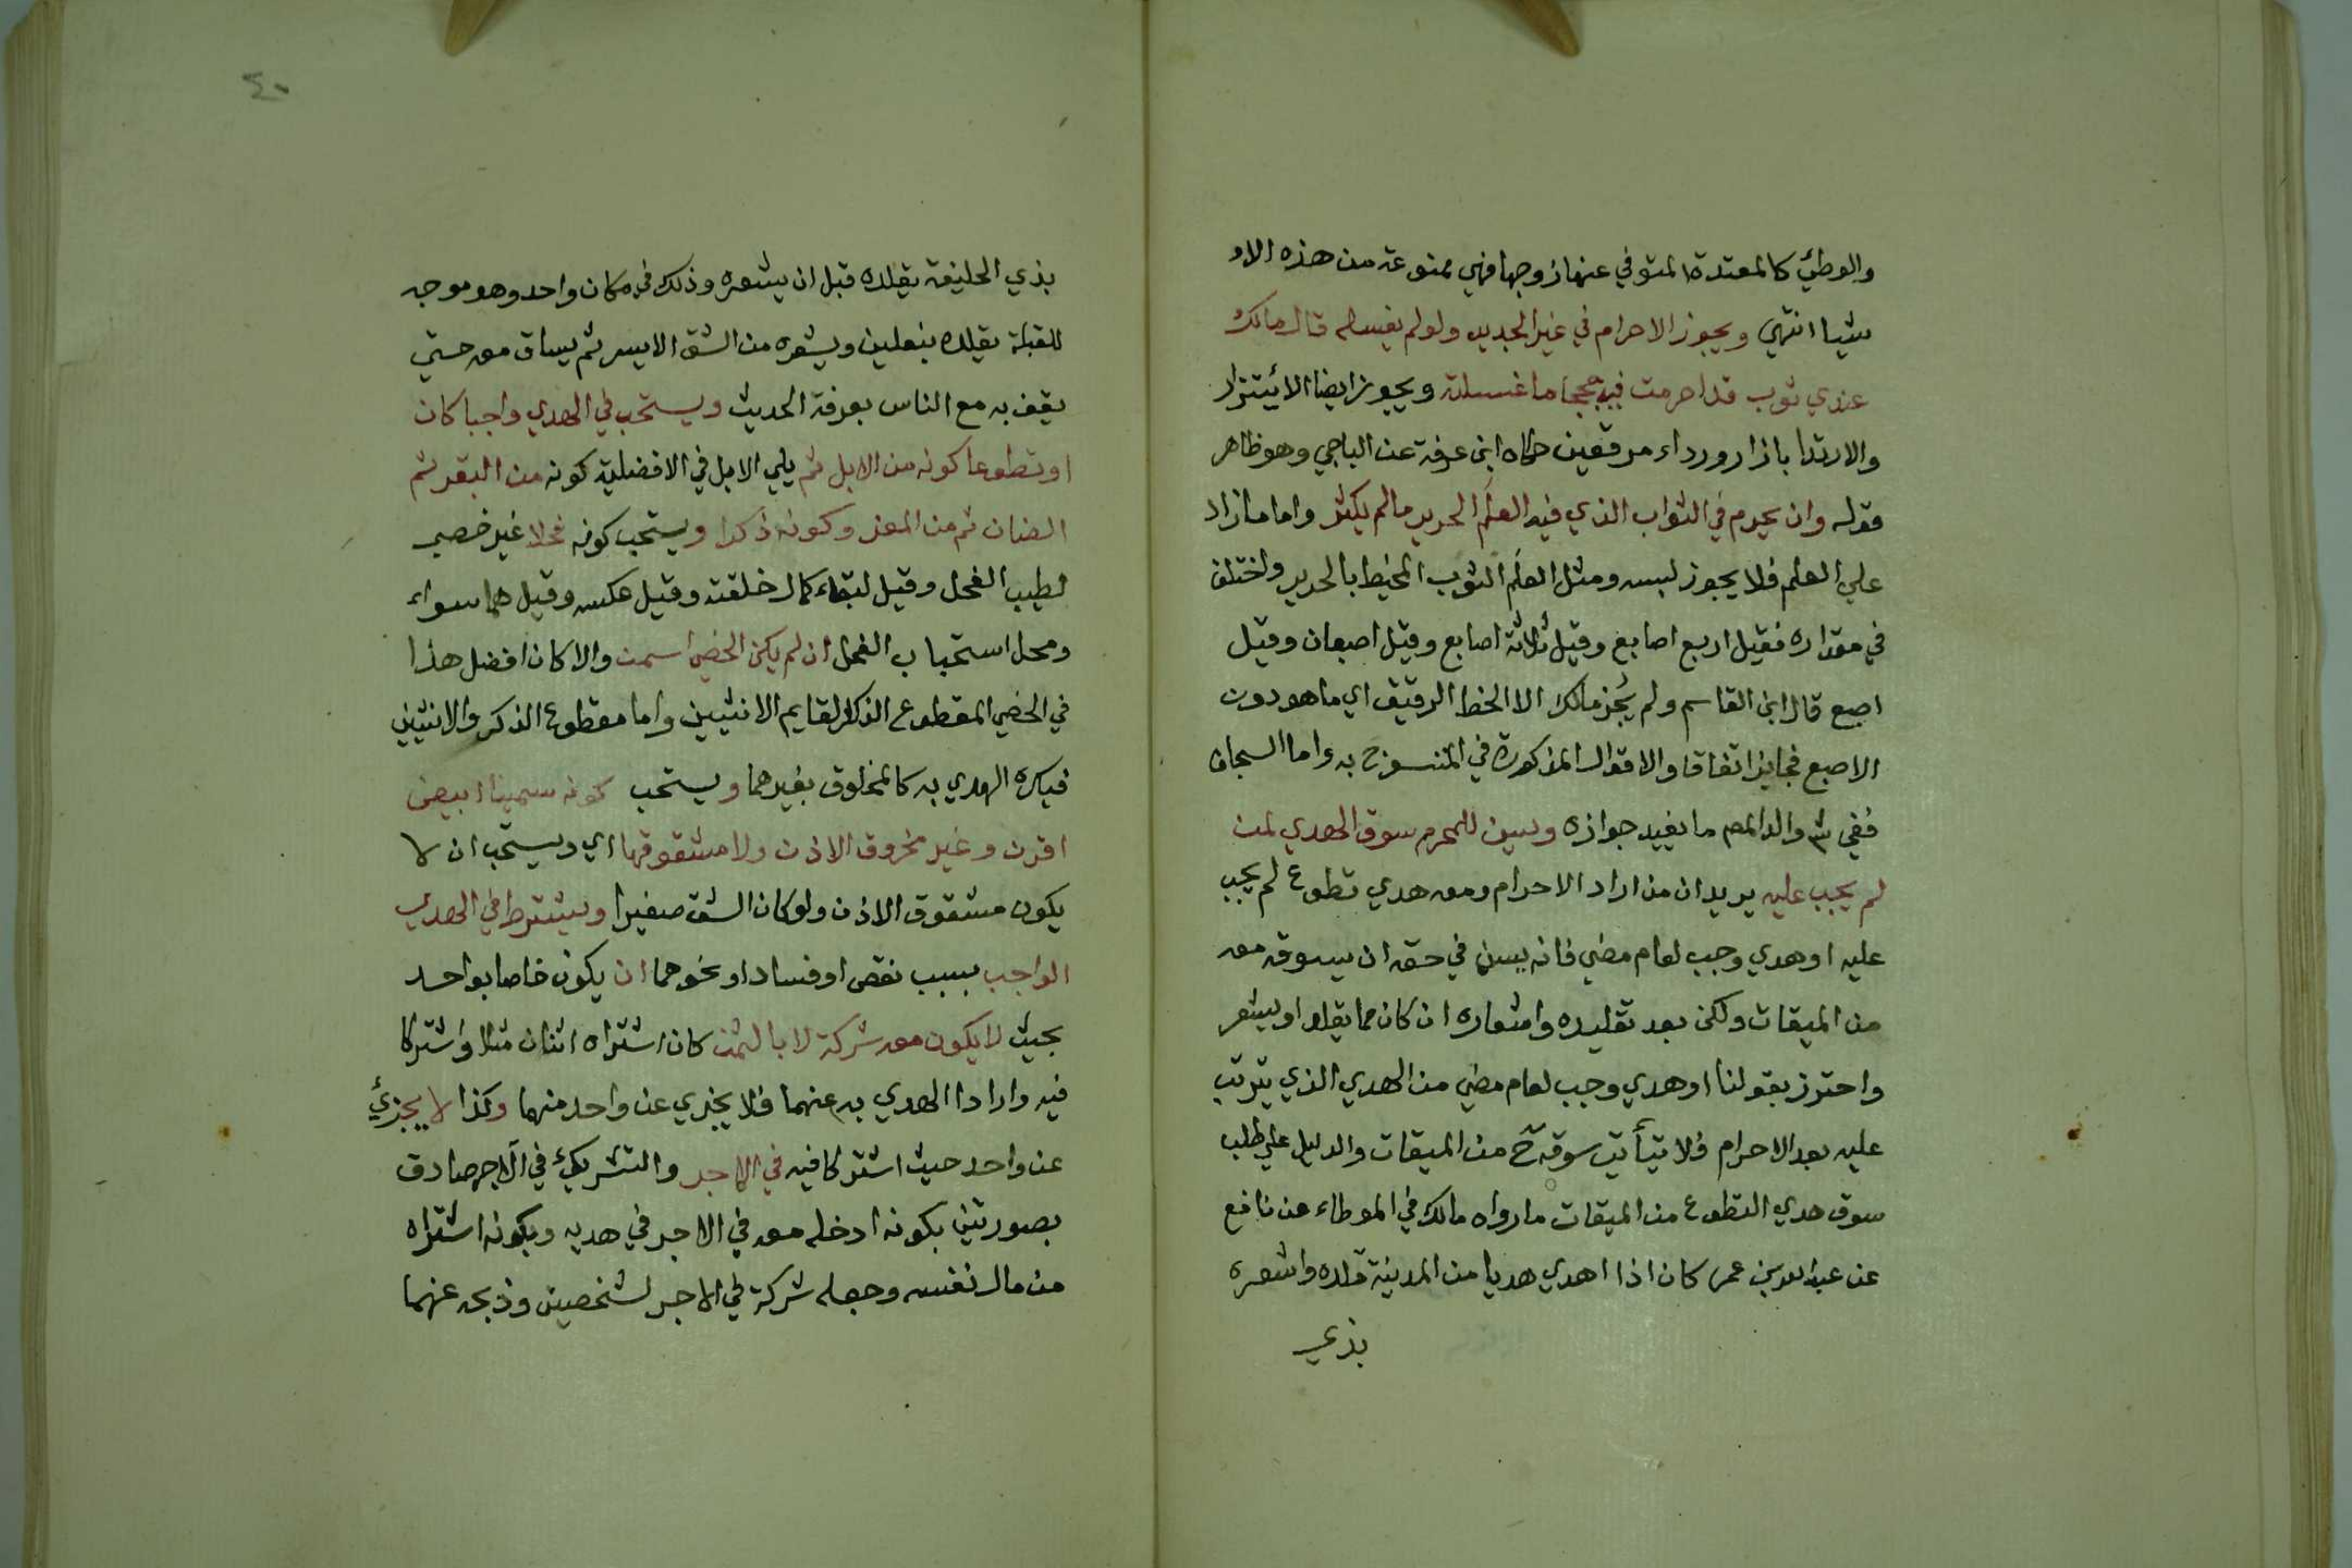 والوطئ كالمعتدة المتوفي عنها زوجها فهي ممنوعة من هذه الاو
شيا انتهي ويجوز الاحرام في غير الجديد ولو لم يغسله قال مالك
عندي ثوب قد احرمت فيه حججا ما غسلته ويجوز ايضا الائتزار
والارتدا بازار ورداء مرقعين حكاه ابن عرفة عن الباجي وهو ظاهر
قوله وان يحرم في الثواب الذي فيه العلم الحرير ما لم يكثر واما ما زاد
علي العلم فلا يجوز لبسه ومثل العلم الثوب المخيط بالحرير واختلف
في مقداره فقيل اربع اصابع وقيل ثلاثة اصابع وقيل اصبعان وقيل
اصبع قال ابن القاسم ولم يجز مالك الا الخط الرقيق اي ما هو دون
الاصبع فجايز اتفاقا والاقوال المذكورة في المنسوج به واما السجاف
ففي شر والد المصـ ما يفيد جوازه ويسن للمحرم سوق الهدي لمن
لم يجب عليه يريد ان من اراد الاحرام ومعه هدي تطوع لم يجب
عليه او هدي وجب لعام مضي فانه يسن في حقه ان يسوقه معه
من الميقات ولكن بعد تقليده واشعاره ان كان مما يقلد او يشعر
واحترز بقولنا او هدي وجب لعام مضي من الهدي الذي يترتب
عليه بعد الاحرام فلا يتأتي سوقه ح من الميقات والدليل علي طلب
سوق هدي التطوع من الميقات ما رواه مالك في الموطاء عن نافع
عن عبد الله بن عمر كان اذا اهدي هديا من المدينة قلده واشعره
بذي
٤٠
بذي الحليفة يقلده قبل ان يشعره وذلك في مكان واحد وهو موجه
للقبلة يقلده بنعلين ويشعره من الشق الايسر ثم يساق معه حتي
يقف به مع الناس بعرفة الحديث ويستحب في الهدي واجبا كان
او تطوعا كونه من الابل ثم يلي الابل في الافضلية كونه من البقر ثم
الضان ثم من المعز وكونه ذكرا ويستحب كونه فحلا غير خصي
لطيب الفحل وقيل لبقاء كمال خلقته وقيل عكسه وقيل هما سواء
ومحل استحباب الفحل ان لم يكن الخصي اسمن والا كان افضل هذا
في الخصي المقطوع الذكر القايم الانثيين واما مقطوع الذكر والانثيين
فيكره الهدي به كالمخلوق بغيرهما ويستحب كونه سمينا ابيض
اقرن وغير مخروق الاذن ولا مشقوقها اي ويستحب ان لا
يكون مشقوق الاذن ولو كان الشق صغيرا ويشترط في الهدي
الواجب بسبب نقص او فساد او نحوهما ان يكون خاصا بواحد
بحيث لا يكون معه شركة لا بالثمن كان اشتراه اثنان مثلا واشتركا
فيه وارادا الهدي به عنهما فلا يجزي عن واحد منهما وكذا لا يجزئ
عن واحد حيث اشتركا فيه في الاجر والتشريك في الاجر صادق
بصورتين بكونه ادخله معه في الاجر في هديه وبكونه اشتراه
من مال نفسه وجعله شركة في الاجر لشخصين وذبحه عنهما